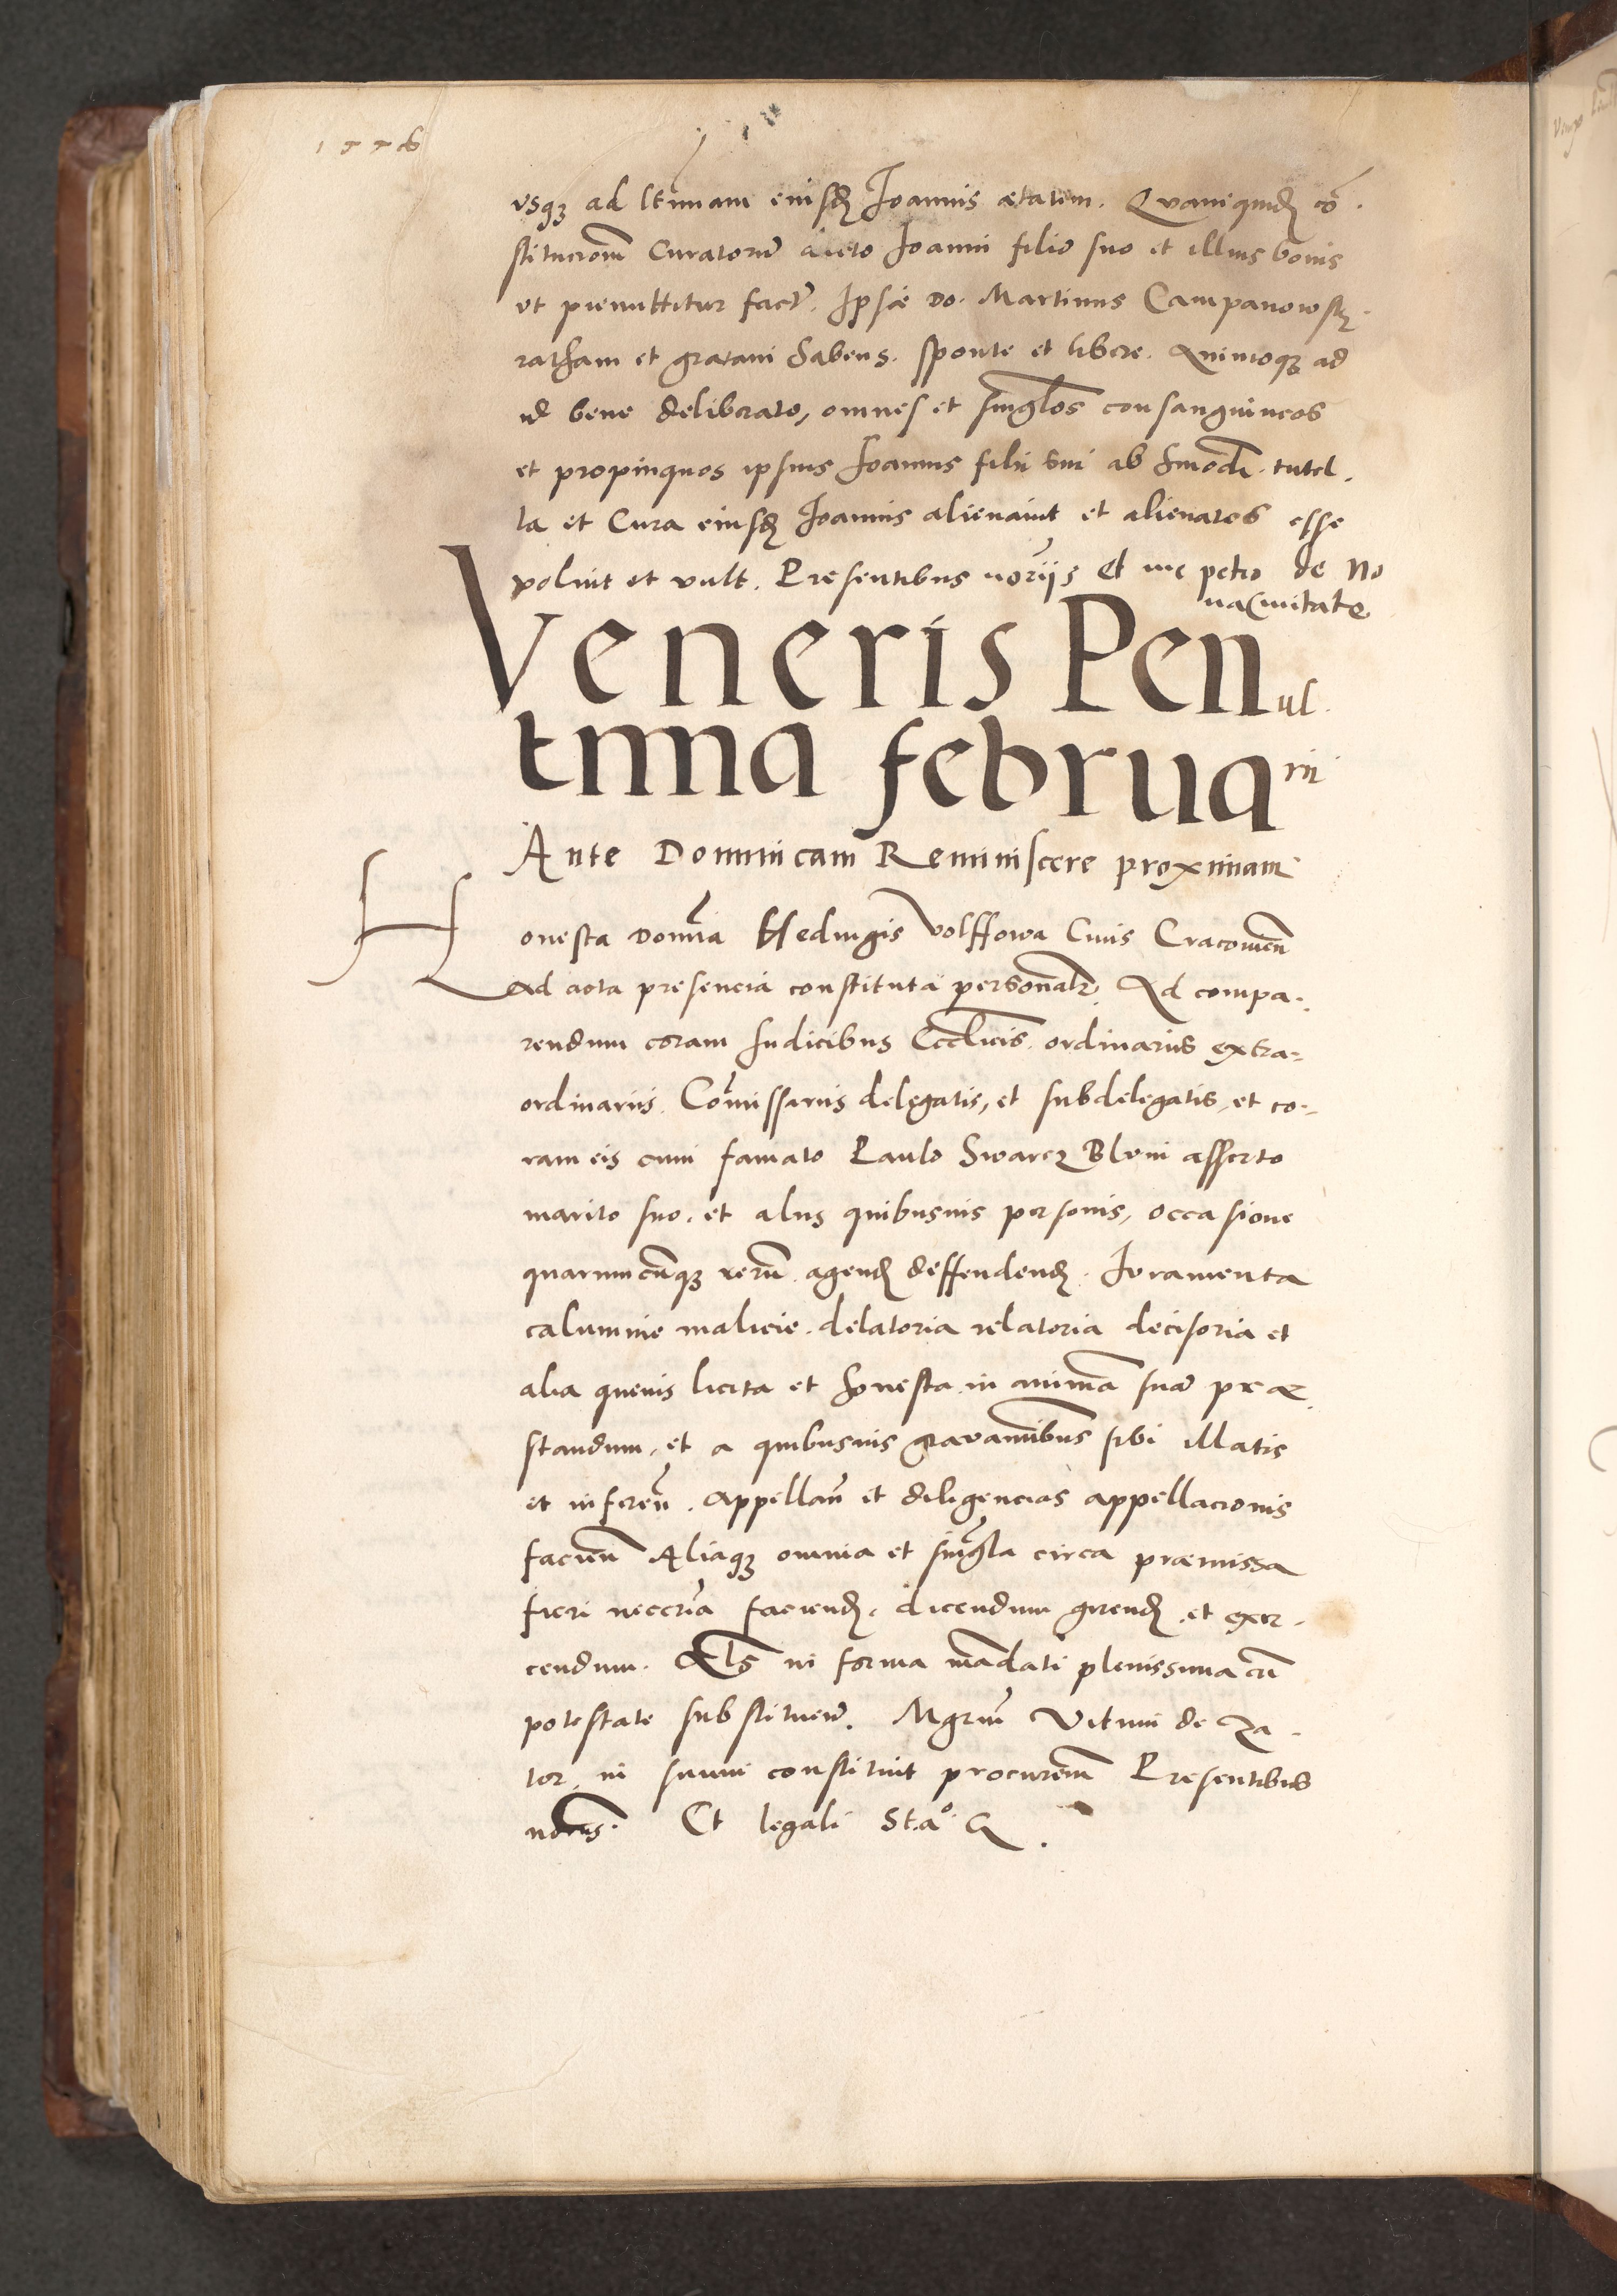 usq₃ ad ltimam eiusd Ioannis ætatem. Quamquid cō
stitucionem Curatorum dicto Ioanni filio suo et illius bonis
ut premittitur factā. Ipse Do. Martinus Campanowsky
ratham et gratam habens. sponte et libere. Animoq₃ ad
id bene deliberato, omnes et singlos consanguineos
et propinquos ipsius Ioannis filii sui ab hmōdi tutel
la et Cura eiusd Ioannis alienavit et alienatos esse
voluit et vult. Presentibus noriis Et me petro de No
vaCivitate
Veneris Penul
tima februarii
Ante Dominicam Reminiscere proximam
Honesta Domīa Hedwigis Volffowa Civis Cracovien
ad acta presencia constituta personalr. Ad compa
rendum coram Iudicibus Ecclicis ordinariis extra-
ordinariis. Comissariis delegatis, et subdelegatis, et co-
ram eis cum famato Paulo Swarcz Bloni asserto
marito suo. et aliis quibusvis personis, occasione
quarumcunq₃ rerum agend deffendend. Iuramenta
calumnie malicie. delatoria relatoria decisoria et
alia quevis licita et honesta in animā suā præ
standum, et a quibusvis gravaminibus sibi illatis
et inferen. Appellan et diligencias appellacionis
faciun Aliaq₃ omnia et singla circa præmissa
fieri neccria faciend. dicendum gerend et exer
cendum. Als in forma mādati plenissima cū
potestate substituen. Mgrum Vitum de Za
tor in suum constituit procurem Presentibus
noriis. Et legali Stao &